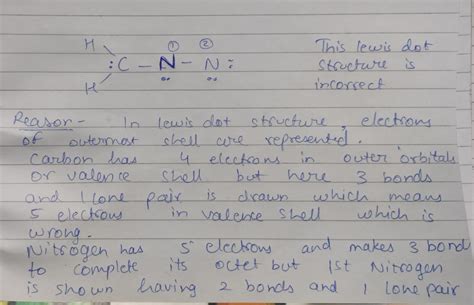 H ① ② This lewis dot
:C - N - N: structure is
H incorrect
Reason - In lewis dot structure, electrons
of outermost shell are represented.
Carbon has 4 electrons in outer orbitals
or valence shell but here 3 bonds
and 1 lone pair is drawn which means
5 electrons in valence shell which is
wrong.
Nitrogen has 5 electrons and makes 3 bond
to complete its octet but 1st Nitrogen
is shown having 2 bonds and 1 lone pair